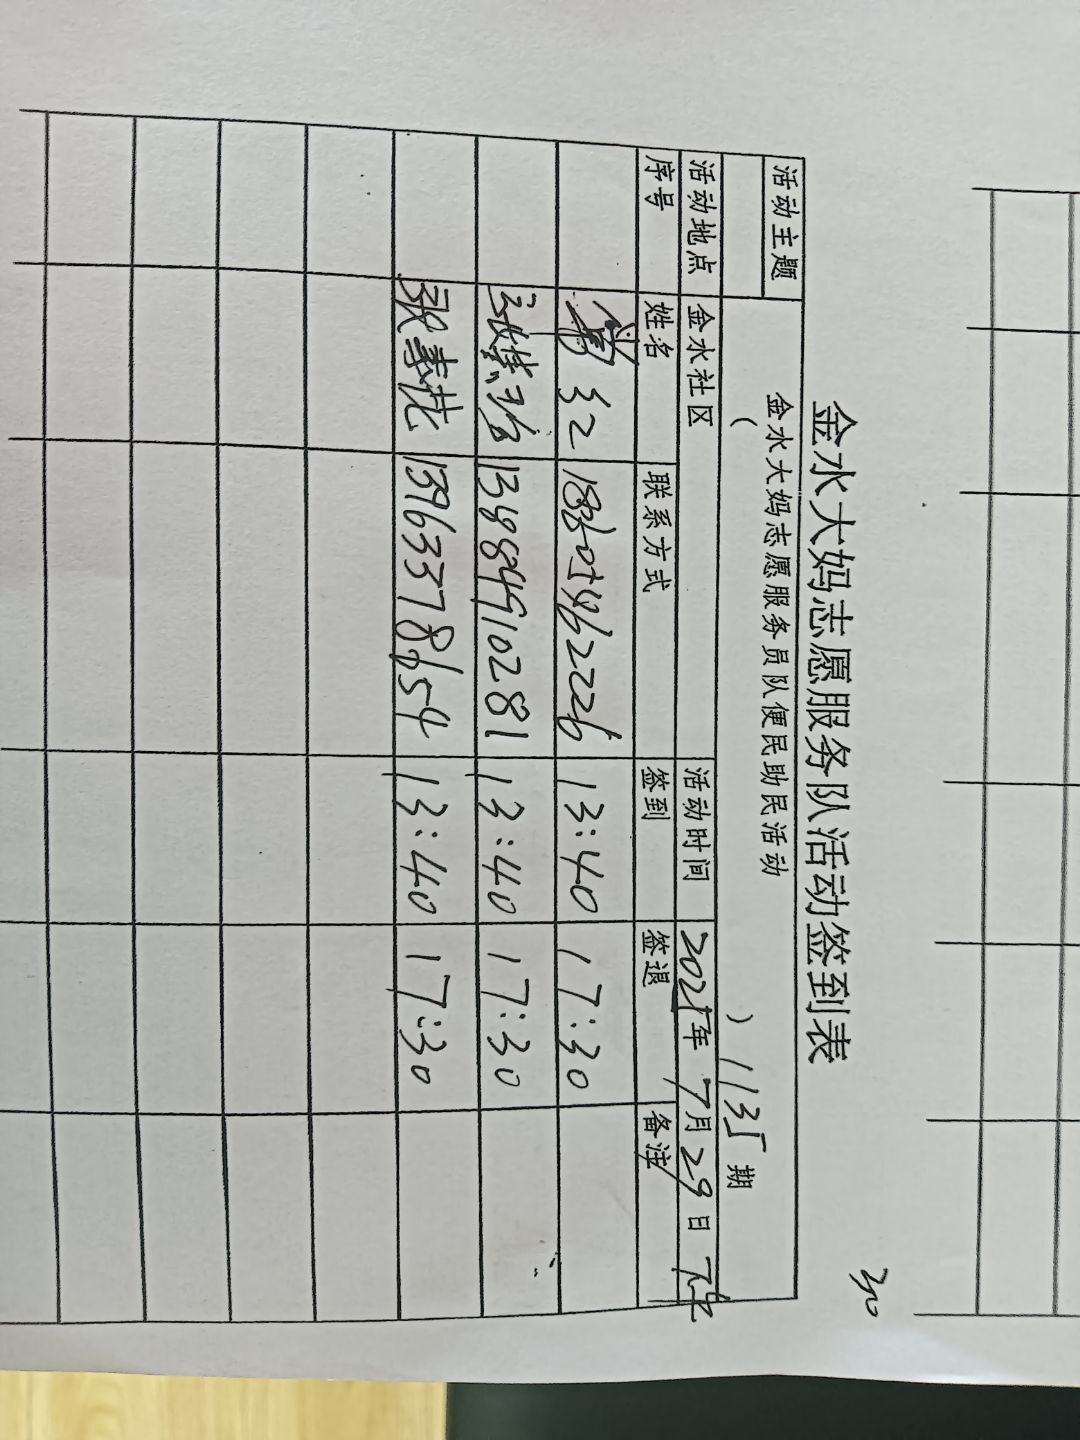 金水大妈志愿服务队活动签到表
30
活动主题
金水大妈志愿服务员队便民助民活动
( ) 1135期
活动地点 金水社区 活动时间 2025年7月29日 下午
序号 姓名 联系方式 签到 签退 备注
13:40 17:30
13884910281 13:40 17:30
张素花 13963378654 13:40 17:30